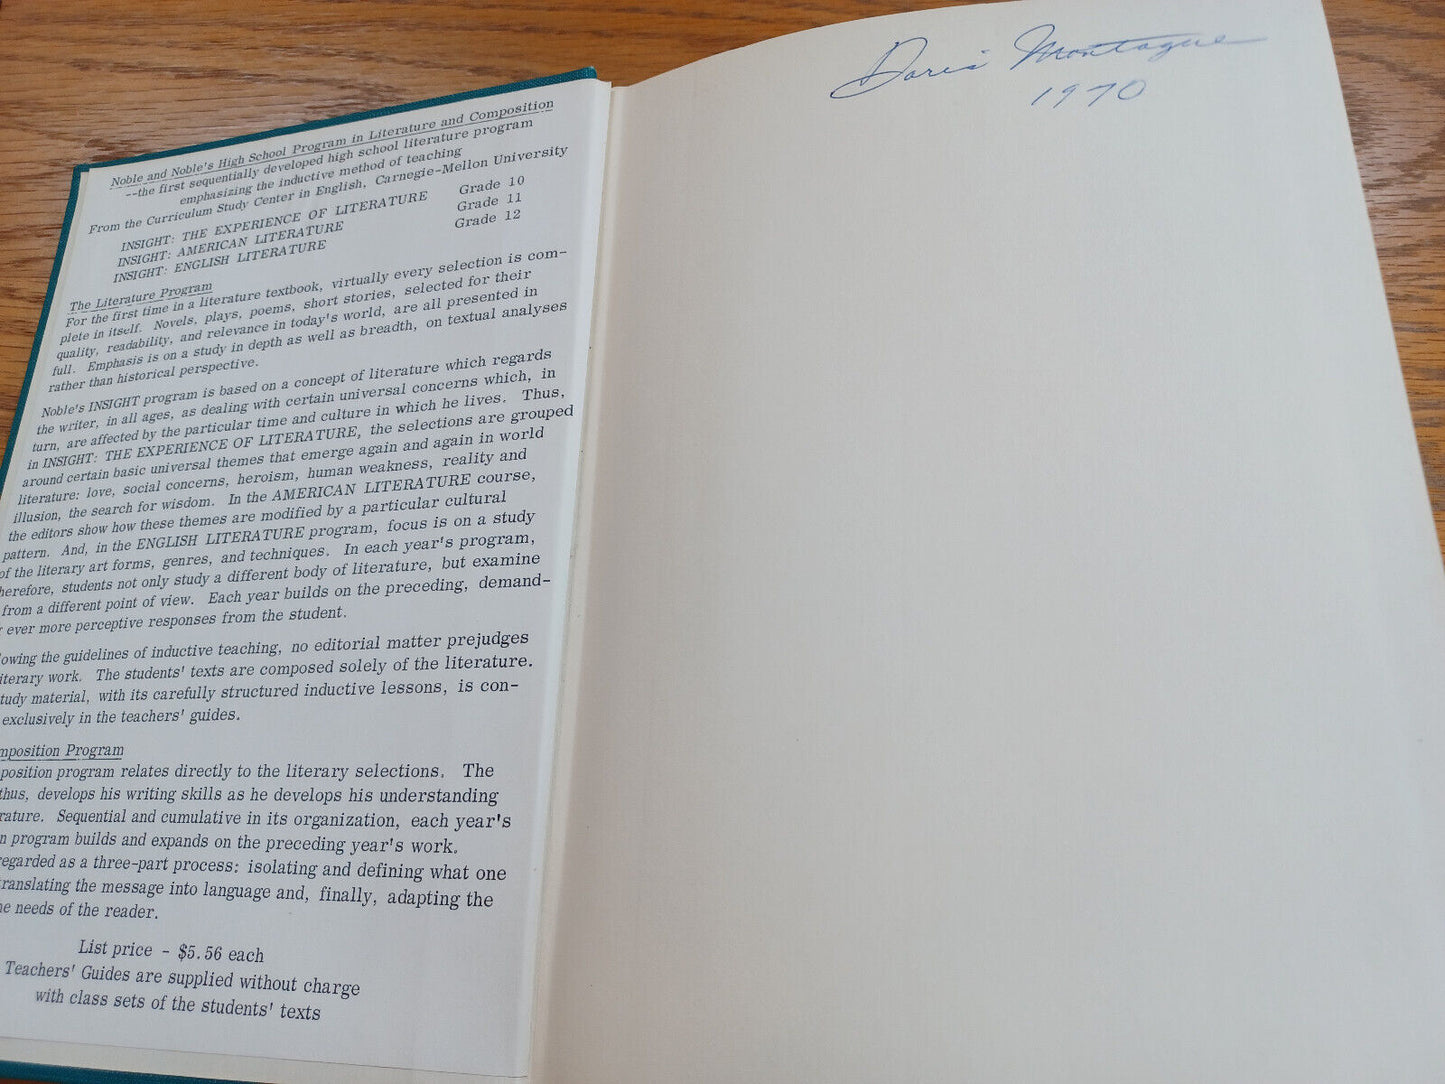 Noble and Noble's High School Program in Literature and Composition
--the first sequentially developed high school literature program
emphasizing the inductive method of teaching
From the Curriculum Study Center in English, Carnegie-Mellon University
INSIGHT: THE EXPERIENCE OF LITERATURE Grade 10
INSIGHT: AMERICAN LITERATURE Grade 11
INSIGHT: ENGLISH LITERATURE Grade 12
The Literature Program
For the first time in a literature textbook, virtually every selection is com-
plete in itself. Novels, plays, poems, short stories, selected for their
quality, readability, and relevance in today's world, are all presented in
full. Emphasis is on a study in depth as well as breadth, on textual analyses
rather than historical perspective.
Noble's INSIGHT program is based on a concept of literature which regards
the writer, in all ages, as dealing with certain universal concerns which, in
turn, are affected by the particular time and culture in which he lives. Thus,
in INSIGHT: THE EXPERIENCE OF LITERATURE, the selections are grouped
around certain basic universal themes that emerge again and again in world
literature: love, social concerns, heroism, human weakness, reality and
illusion, the search for wisdom. In the AMERICAN LITERATURE course,
the editors show how these themes are modified by a particular cultural
pattern. And, in the ENGLISH LITERATURE program, focus is on a study
of the literary art forms, genres, and techniques. In each year's program,
herefore, students not only study a different body of literature, but examine
from a different point of view. Each year builds on the preceding, demand-
ever more perceptive responses from the student.
owing the guidelines of inductive teaching, no editorial matter prejudges
iterary work. The students' texts are composed solely of the literature.
tudy material, with its carefully structured inductive lessons, is con-
exclusively in the teachers' guides.
mposition Program
position program relates directly to the literary selections. The
thus, develops his writing skills as he develops his understanding
rature. Sequential and cumulative in its organization, each year's
n program builds and expands on the preceding year's work.
regarded as a three-part process: isolating and defining what one
translating the message into language and, finally, adapting the
he needs of the reader.
List price - $5.56 each
Teachers' Guides are supplied without charge
with class sets of the students' texts
Doris Montague
1970